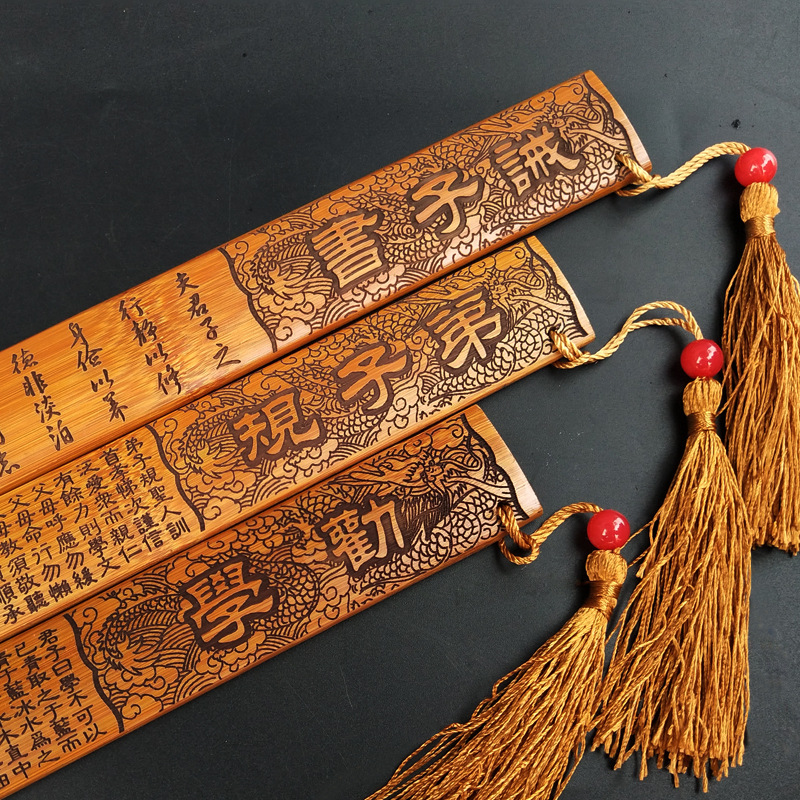 誡子書
夫君子之
行靜以修
身儉以養
德非淡泊
弟子規
弟子規聖人訓
首孝悌次謹信
泛愛眾而親仁
有餘力則學文
父母呼應勿緩
父母命行勿懶
父母教須敬聽
順承
勸學
君子曰學不可以
已青取之于藍而
青于藍冰水為之
水木直中